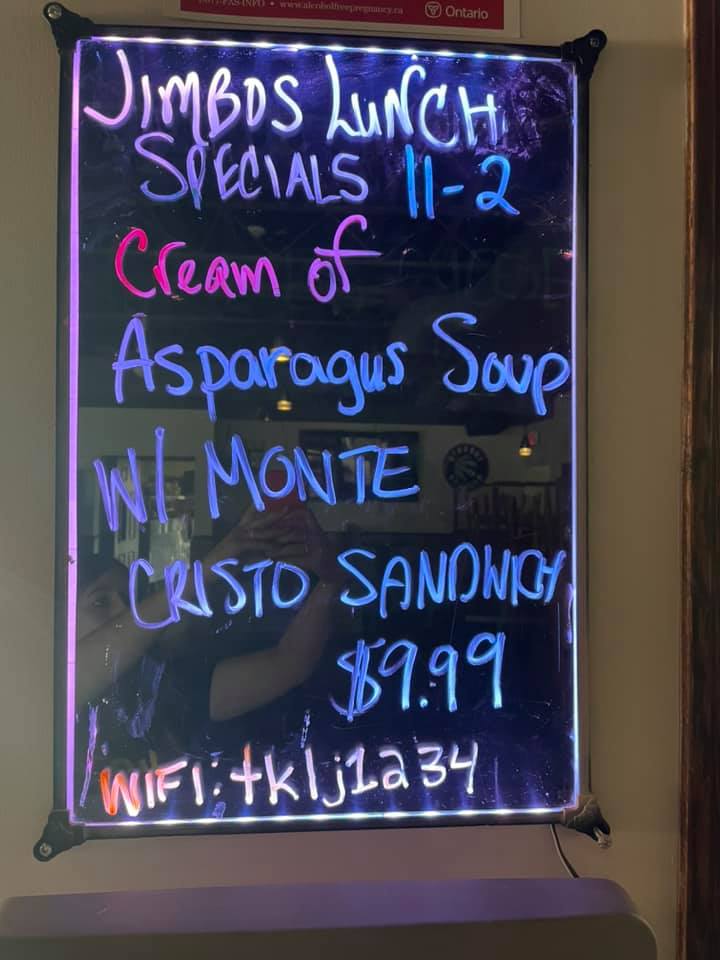 www.alcoholfreepregnancy.ca
Ontario
JIMBOS LUNCH
SPECIALS 11-2
Cream of
Asparagus Soup
W/ MONTE
CRISTO SANDWICH
$9.99
WIFI: tklj1234